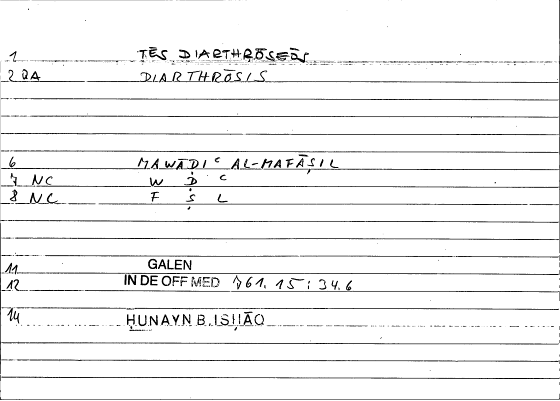 1 TĒS DIARTHRŌSEŌS
2 QA DIARTHRŌSIS
6 MAWĀḌIᶜ AL-MAFĀṢIL
7 NC W Ḍ ᶜ
8 NC F Ṣ L
11 GALEN
12 IN DE OFF MED 761.15 : 34.6
14 ḤUNAYN B. ISḤĀQ